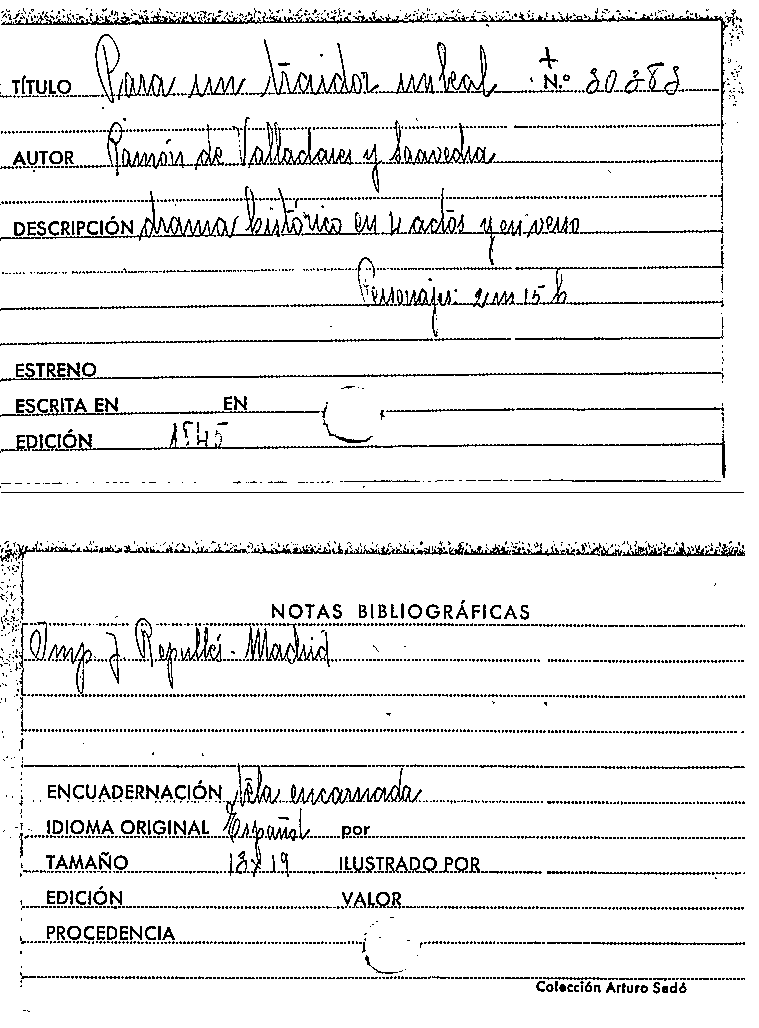 TÍTULO Para un traidor un leal + N.º
AUTOR Ramón de Valladares y Saavedra
DESCRIPCIÓN drama histórico en 4 actos y en verso
Personajes: 2 m 15 h
ESTRENO
ESCRITA EN EN
EDICIÓN
NOTAS BIBLIOGRÁFICAS
Imp J Repullés - Madrid
ENCUADERNACIÓN tela encarnada
IDIOMA ORIGINAL Español por
TAMAÑO 13x19 ILUSTRADO POR
EDICIÓN VALOR
PROCEDENCIA
Colección Arturo Sedó